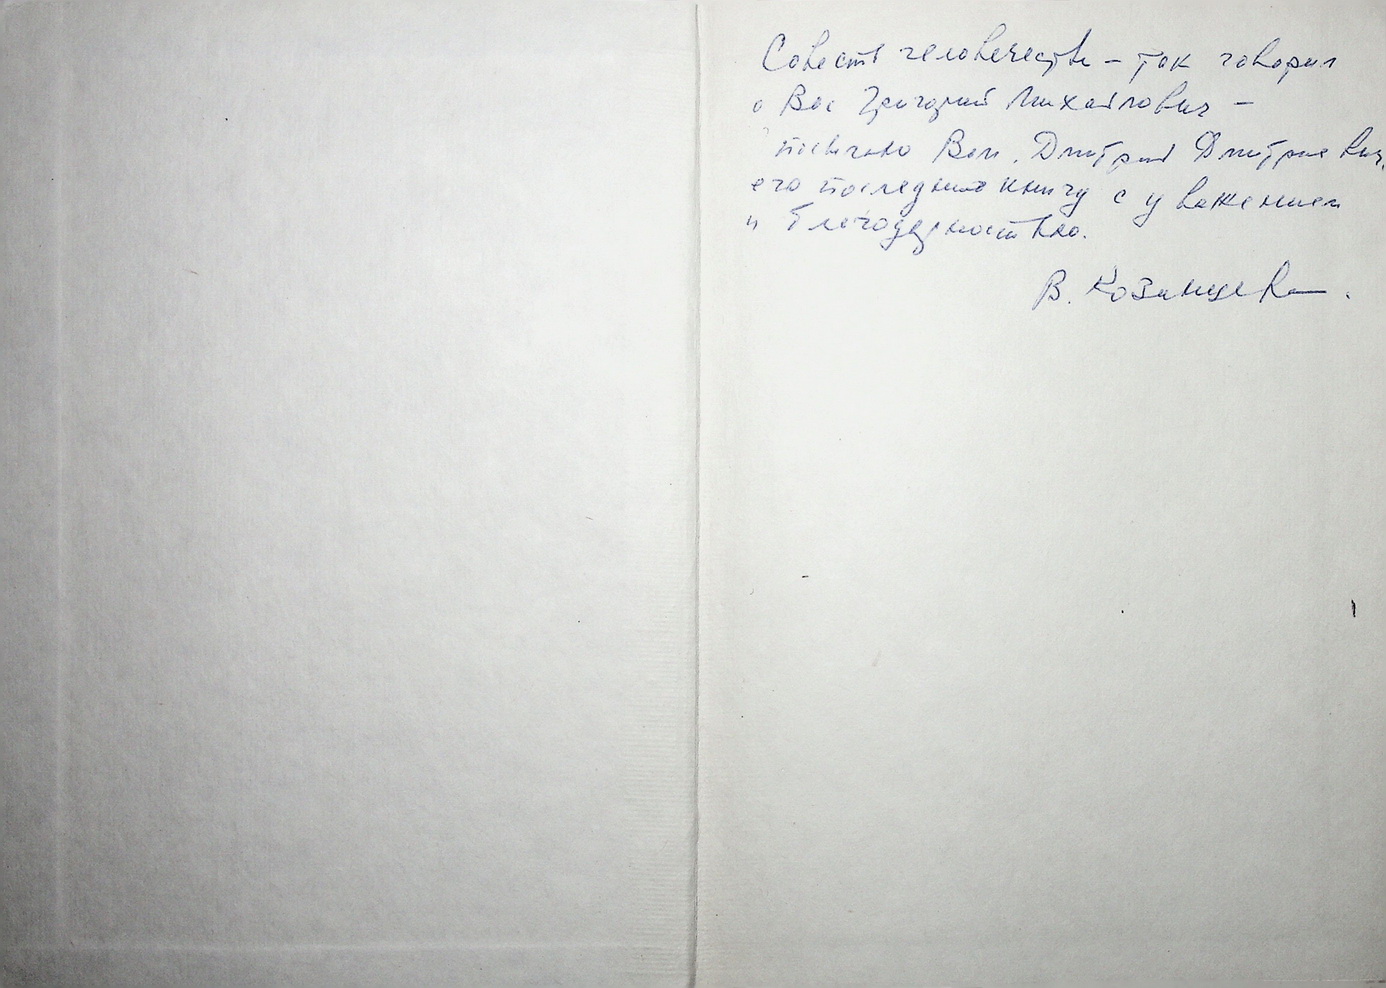 Совесть человечества – так говорил
о Вас Григорий Михайлович –
посылаю Вам, Дмитрий Дмитриевич,
его последнюю книгу с уважением
и благодарностью.
В. Козинцева.